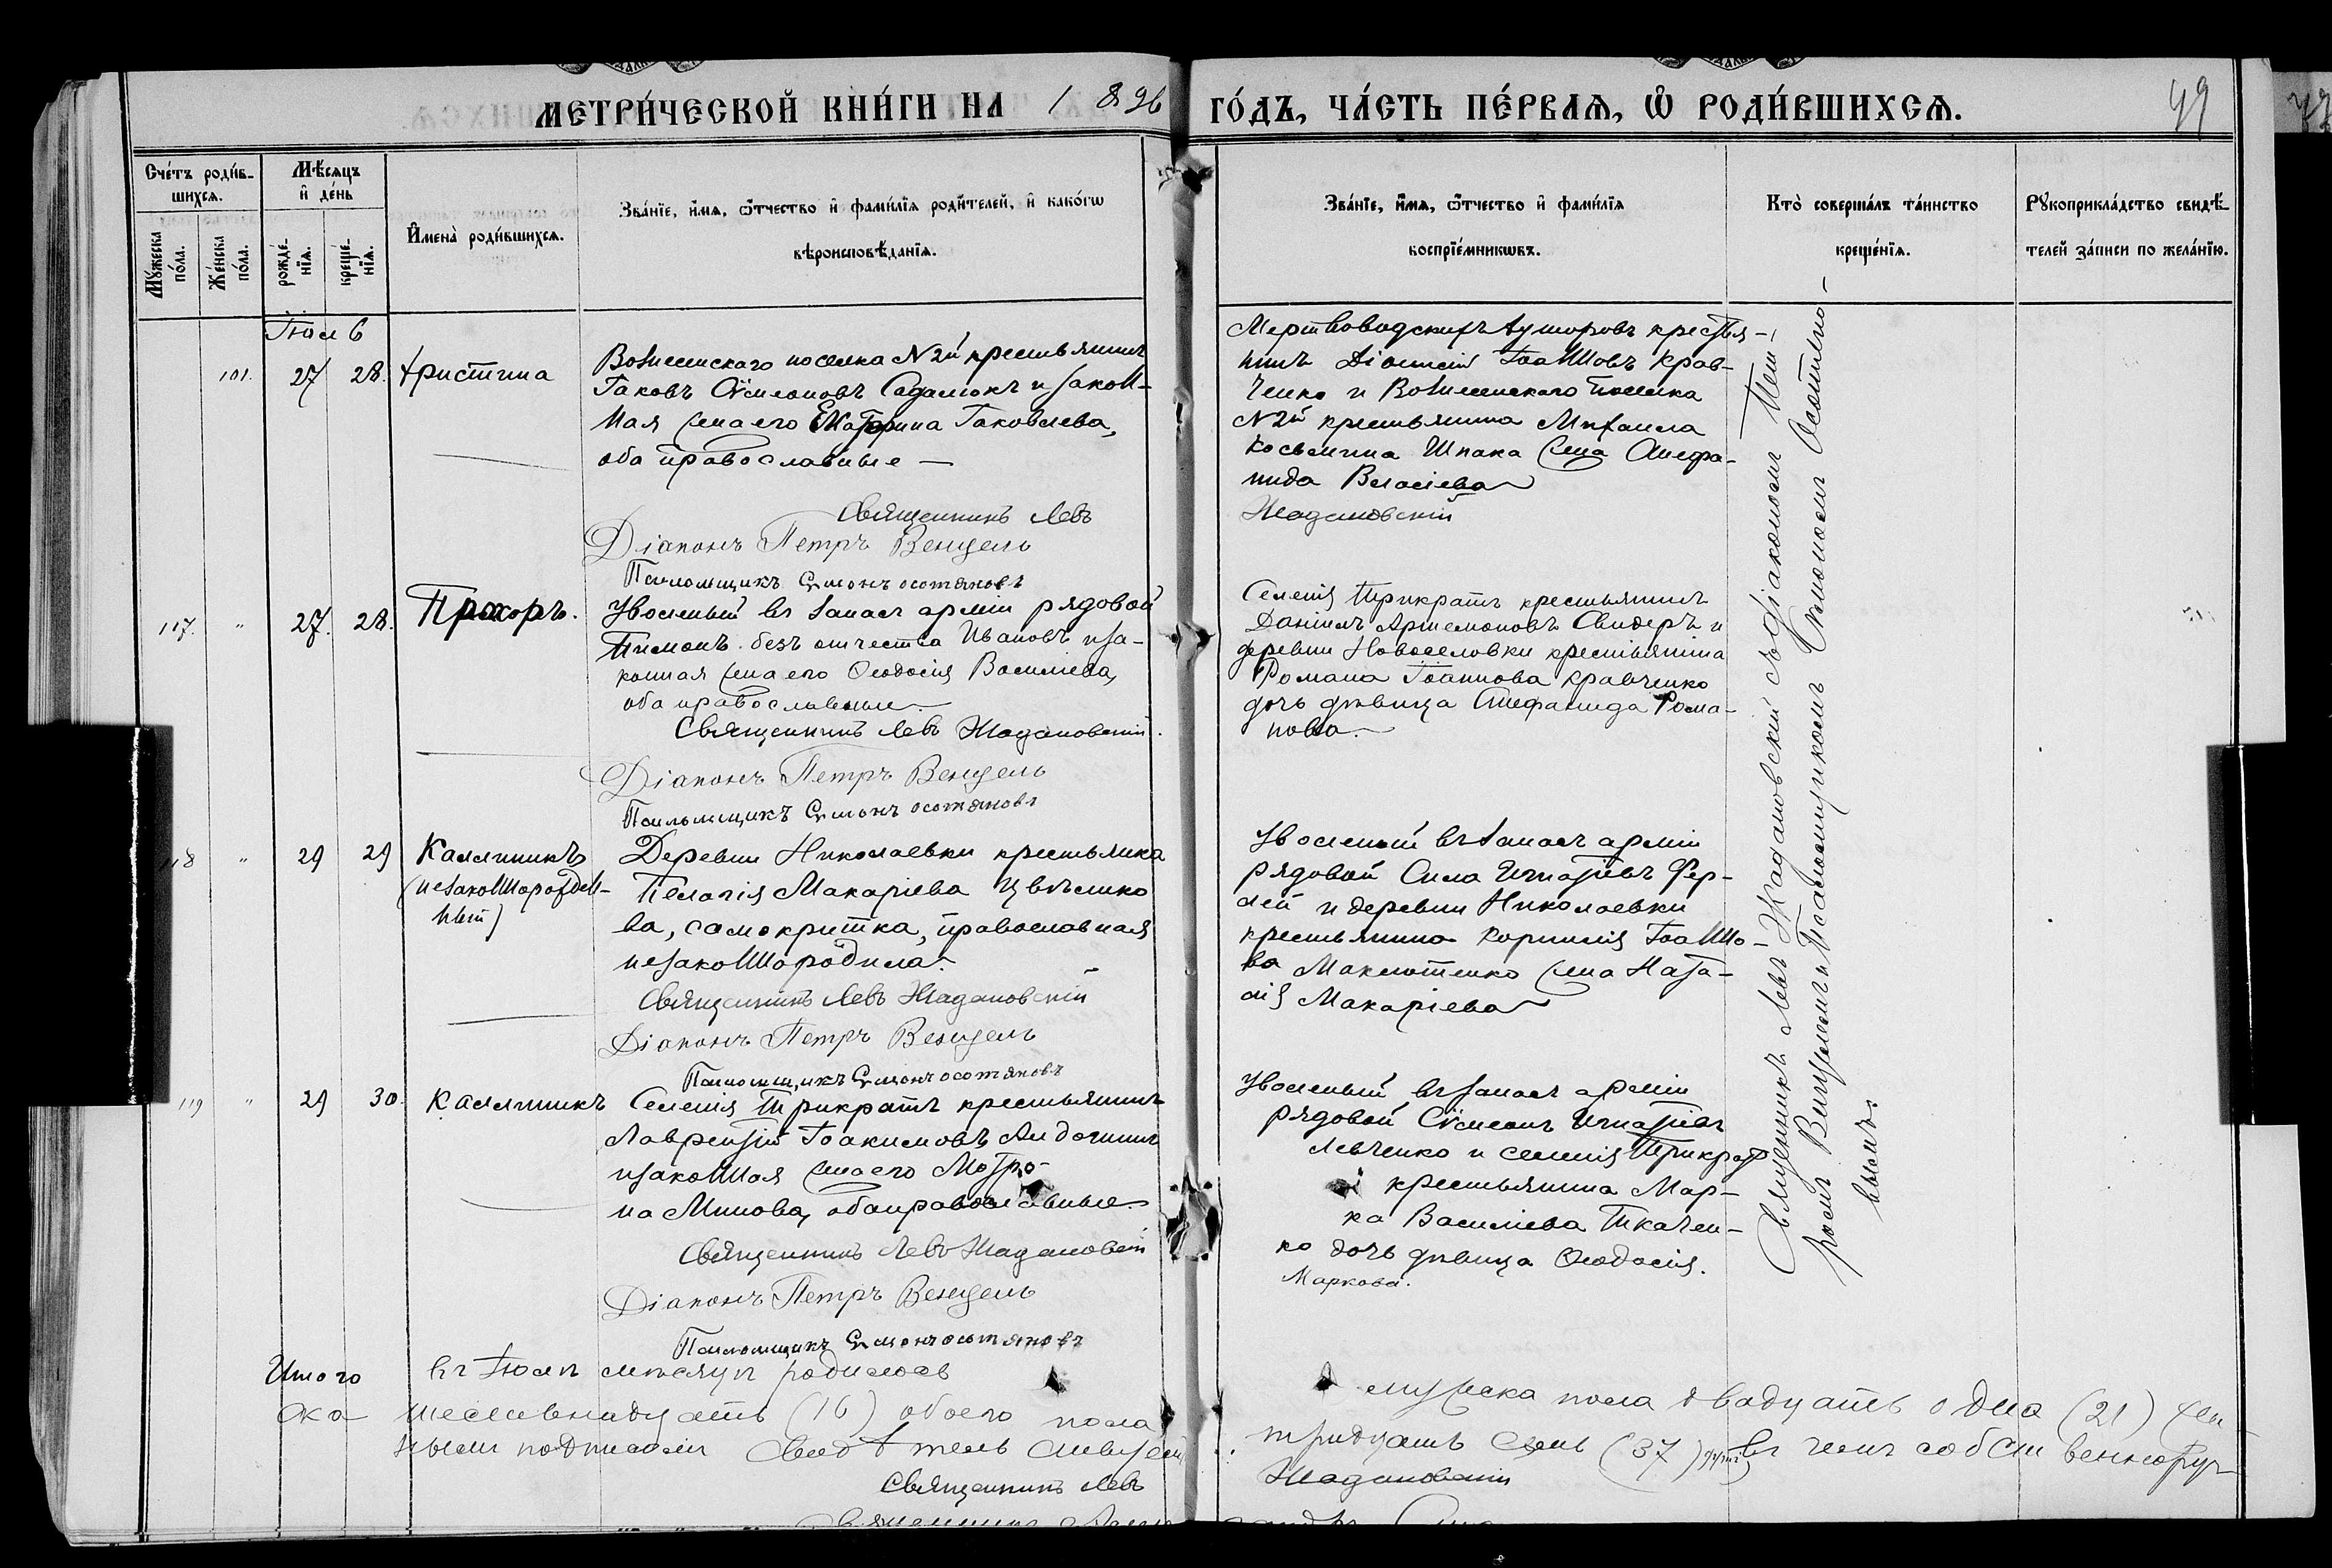 МЕТРИ́ЧЕСКОЙ КНИ́ГИ НА 1896 ГО́ДЪ, ЧА́СТЬ ПЕ́РВАѦ, Ѡ҆ РОДИ́ВШИХСѦ.
49
Сче́тъ роди́в-
шихсѧ.
Мꙋ́жеска по́ла.
Же́нска по́ла.
Мѣ́сѧцъ
и҆ де́нь
рожде́-
нїѧ.
креще́-
нїѧ.
И҆мена̀ роди́вшихсѧ.
Зва́нїе, и҆́мѧ, ѻ҆́тчество и҆ фами́лїѧ роди́телей, и҆ како́гѡ
вѣроисповѣ́данїѧ.
Зва́нїе, и҆́мѧ, ѻ҆́тчество и҆ фами́лїѧ
воспрїе́мникѡвъ.
Кто̀ соверша́лъ та́инство
креще́нїѧ.
Рꙋкоприкла́дство свидѣ́-
телей за́писи по жела́нїю.
Іюль
101. 27 28. Христина
Вознесенскаго поселка N 2й крестьянинъ
Іаковъ Сѵмеоновъ и закон-
ная жена его Екатерина Іаковлева,
оба православные —
Священникъ Левъ Жадановскій
Діаконъ Петръ Венцель
Псаломщикъ Сѵмонъ Осотяновъ
Мертвоводскихъ хуторовъ крестья-
нинъ Діонисій Іоанновъ Крав-
ченко и Вознесенскаго поселка
N 2й крестьянина Михаила
Косьмина Шпака жена Стефа-
нида Власіева
117. " 27. 28. Прохоръ.
Уволеный въ запасъ арміи рядовой
Пимонъ безъ отчества Ивановъ и за-
конная жена его Ѳеодосія Василіева,
оба православные.
Священникъ Левъ Жадановскій.
Діаконъ Петръ Венцель
Псаломщикъ Сѵмонъ Осотяновъ
Селенія Трикратъ крестьянинъ
Даніилъ Артемоновъ Свидеръ и
деревни Новоселовки крестьянина
Романа Іоаннова Кравченко
дочь дѣвица Стефанида Рома-
нова.
118 " 29 29 Каллиникъ
(незаконорожден-
ный)
Деревни Николаевки крестьянка
Пелагія Макаріева Цвѣлико
ва, самокритка, православная
незаконо родила.
Священникъ Левъ Жадановскій
Діаконъ Петръ Венцель
Псаломщикъ Сѵмонъ Осотяновъ
Уволеный въ запасъ арміи
рядовой Сила Игнатіевъ Фер-
лей и деревни Николаевки
крестьянина Корнилія Іоанно-
ва Маклютенко жена Ната-
лія Макаріева
119 " 29 30. Каллиникъ
Селенія Трикратъ крестьянинъ
Лаврентій Іоакимовъ
и законная жена его Матро-
на Минова, оба православные.
Священникъ Левъ Жадановскій
Діаконъ Петръ Венцель
Псаломщикъ Сѵмонъ Осотяновъ
Уволеный въ запасъ арміи
рядовой Сѵмеонъ Игнатіевъ
Левченко и селенія Трикратъ
крестьянина Мар-
ка Василіева Ткачен-
ко дочь дѣвица Ѳеодосія.
Маркова.
Священникъ Левъ Жадановскій съ діакономъ Пет-
ромъ Венцелемъ и Псаломщикомъ Сѵмономъ Осотяно-
вымъ.
Итого въ Іюлѣ мѣсяцѣ родилось мужеска пола двадцать одна (21) жен
ска шестьнадцать (16) обоего пола тридцать семь (37) въ чемъ собственноруч-
нымъ подписомъ
Священникъ Левъ Жадановскій